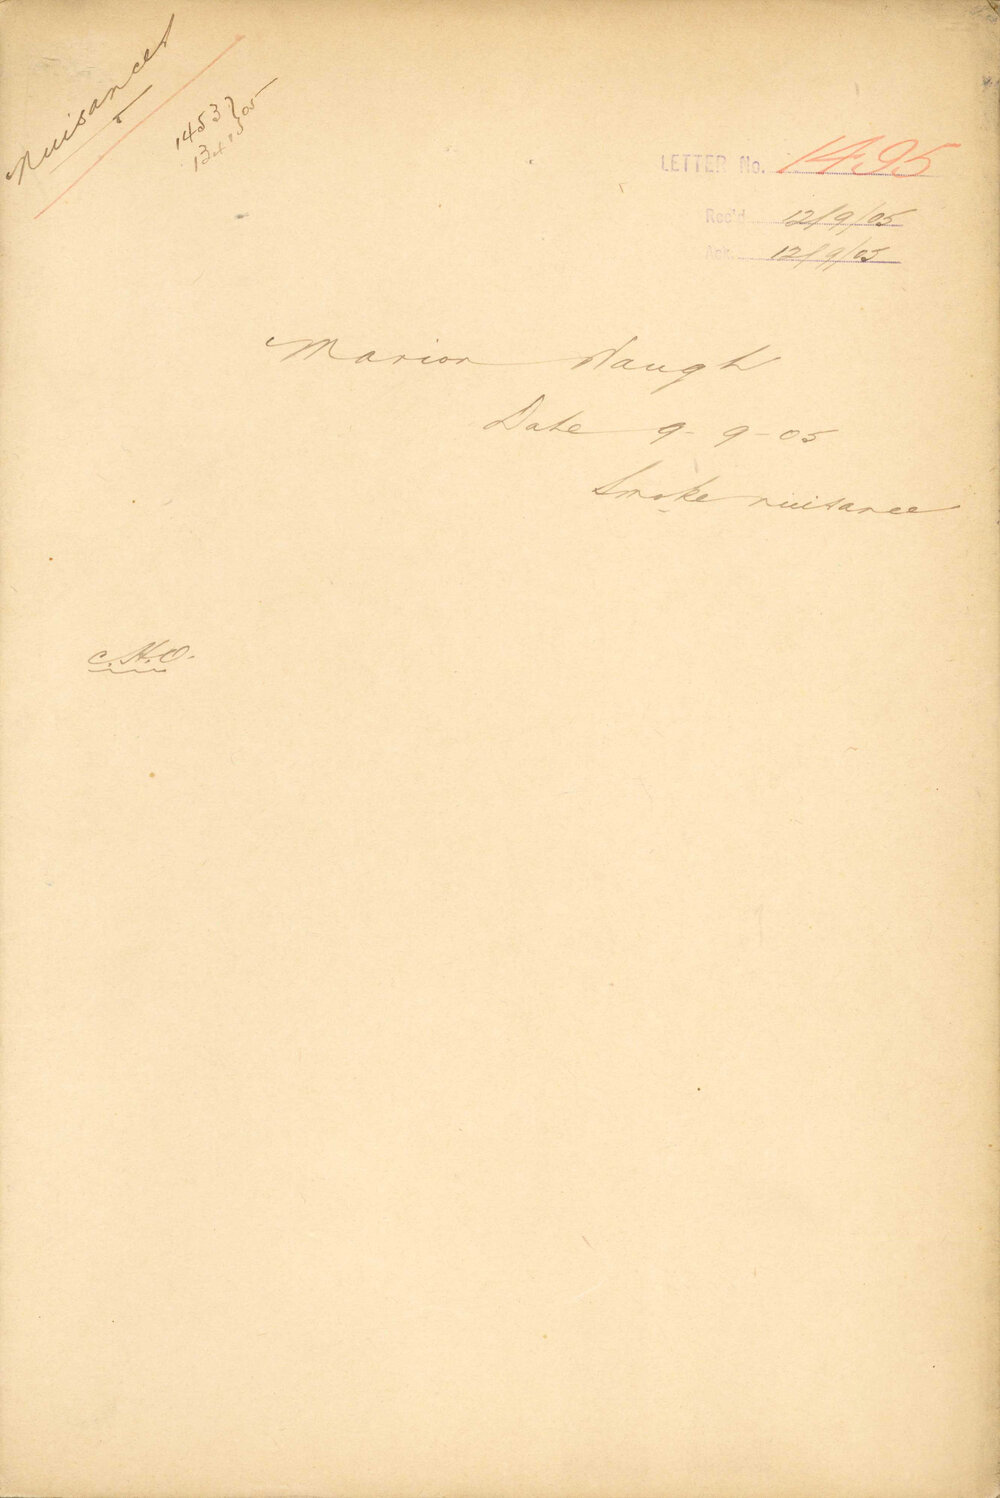 Nuisances
1453
1341
05
LETTER No. 1495
Rec'd 12/9/05
Ack. 12/9/05
Marion Waugh
Date 9-9-05
Smoke nuisance
C.H.O.